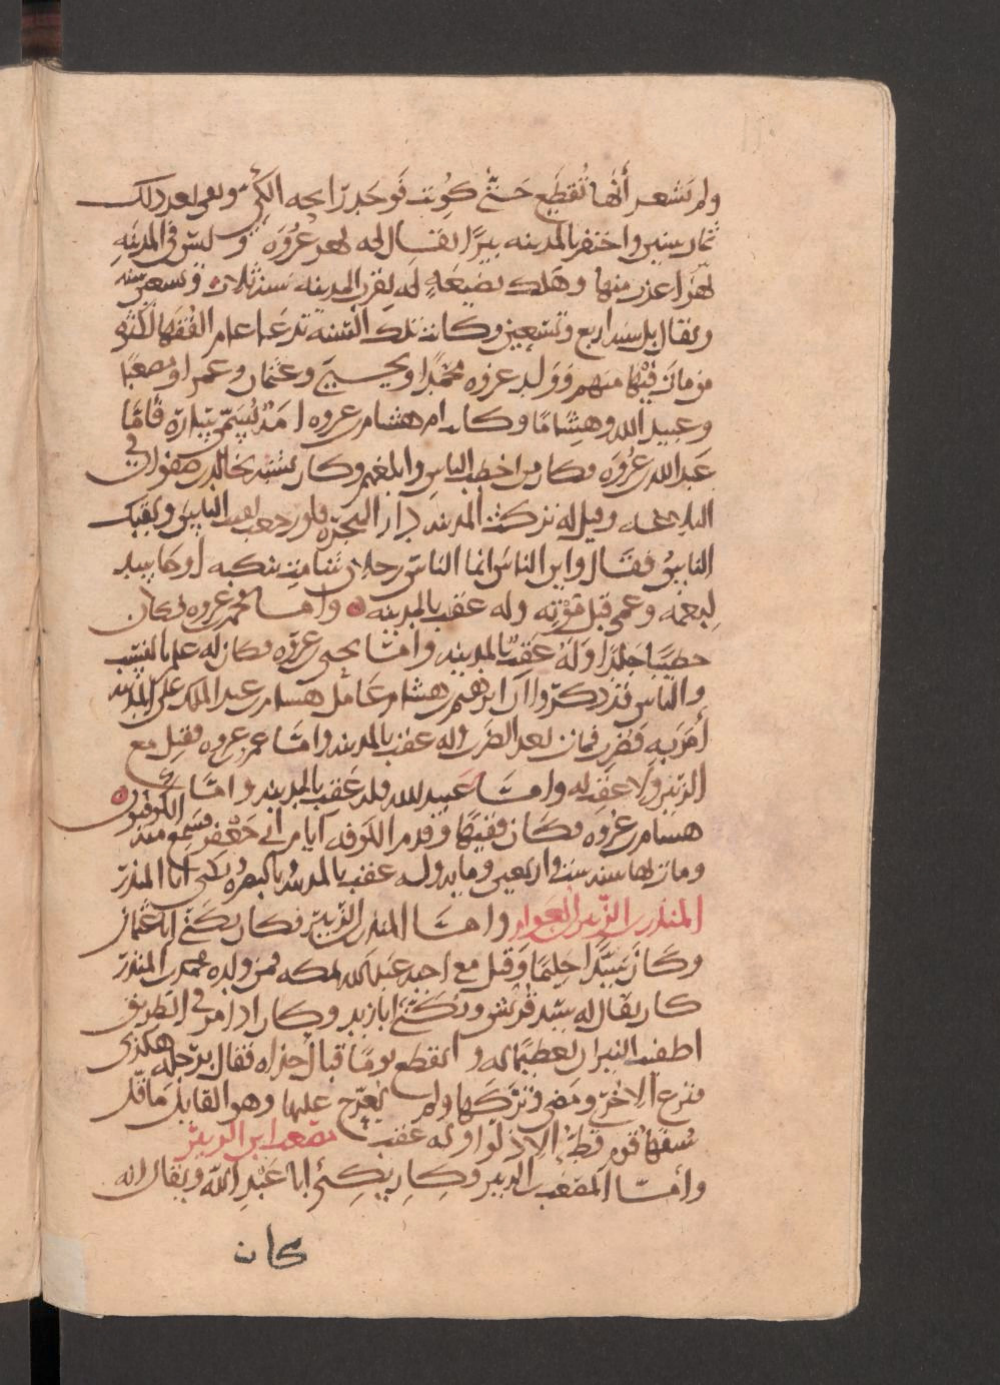 ولم تشعر أنها تقطع حتى كويت فوجد رائحه الكي وبقى بعد ذلك
ثمان سنين واحتفر بالمدينه بيرا يقال لها بير عروه وليس في المدينه
بير اعذب منها وهلك بضيعة له بقرب المدينه سنة ثلاث وتسعين
ويقال بل سنة اربع وتسعين وكانت تلك السنه تدعا عام الفقها لكثره
من مات فيها منهم وولد عروه محمدا ويحيى وعثمان وعمرا ومصعبا
وعبيد الله وهشاما وكانت ام هشام بن عروه امة تسمى ساره فاما
عبد الله بن عروه فكان من اخطب الناس وابلغهم وكان يشبه بخالد بن صفوان في
البلاغه وقيل له تركت المدينه دار الهجره فلو رجعت لقيت الناس ولقيك
الناس فقال واين الناس انما الناس رجلان شامت بنكبه او حاسد
لنعمه وعمى قبل موته وله عقب بالمدينه واما محمد بن عروه فكان
خطيبا جلدا وله عقب بالمدينه واما يحيى بن عروه فكان له علم بالنسب
والناس فذكروا ان ابرهيم بن هشام عامل هشام بن عبد الملك على المدينه
أمر به فضرب فمات بعد الضرب وله عقب بالمدينه واما عمر بن عروه فقتل مع
الزبير ولا عقب له واما عبيد الله فله عقب بالمدينه واما
هشام بن عروه فكان فقيها وقدم الكوفه ايام ابي جعفر فسمع منه الكوفيون
ومات بها سنه ست واربعين ومايه وله عقب بالمدينه وبالبصره يكنى ابا المنذر
المنذر بن الزبير بن العوام واما المنذر بن الزبير فكان يكنى ابا عثمان
وكان سيدا حليما وقتل مع اخيه عبد الله بمكه فمن ولده محمد بن المنذر
كان يقال له سيد قريش ويكنى ابا زيد وكان اذا مر في الطريق
اطفيت النيران تعظيما له وانقطع يوما قبال حذاه فقال برجله هكذى
فنزع الاخرى ومضى وتركها ولم يعرج عليها وهو القايل ما قل
سفها قوم قط الا ذلوا وله عقب مصعب ابن الزبير
وأما المصعب بن الزبير وكان يكنى ابا عبد الله ويقال انه
كان